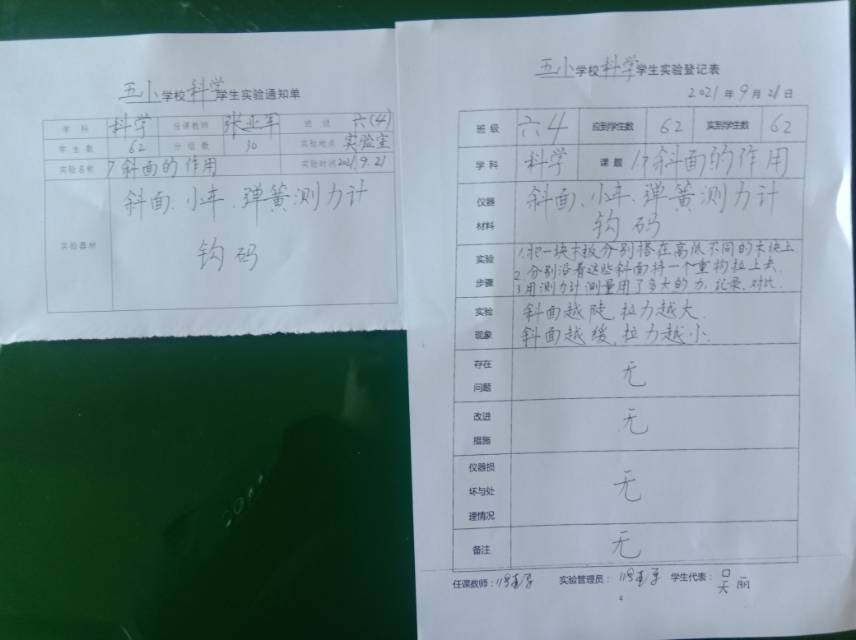 五小学校科学学生实验通知单
学科 科学 任课教师 张亚军 班级 六(4)
学生数 62 分组数 10 实验地点 实验室
实验名称 7斜面的作用 实验时间 2021.9.21
实验器材 斜面、小车、弹簧测力计
钩码
五小学校科学学生实验登记表
2021年9月21日
班级 六4 应到学生数 62 实到学生数 62
学科 科学 课题 17斜面的作用
仪器
材料
斜面、小车、弹簧测力计
钩码
实验
步骤
1.把一块木板分别搭在高低不同的木块上
2.分别沿着这些斜面将一个重物拉上去.
3.用测力计测量用了多大的力,记录、对比.
实验
现象
斜面越陡,拉力越大.
斜面越缓,拉力越小.
存在
问题
无
改进
措施
无
仪器损
坏与处
理情况
无
备注 无
任课教师: 实验管理员: 学生代表: